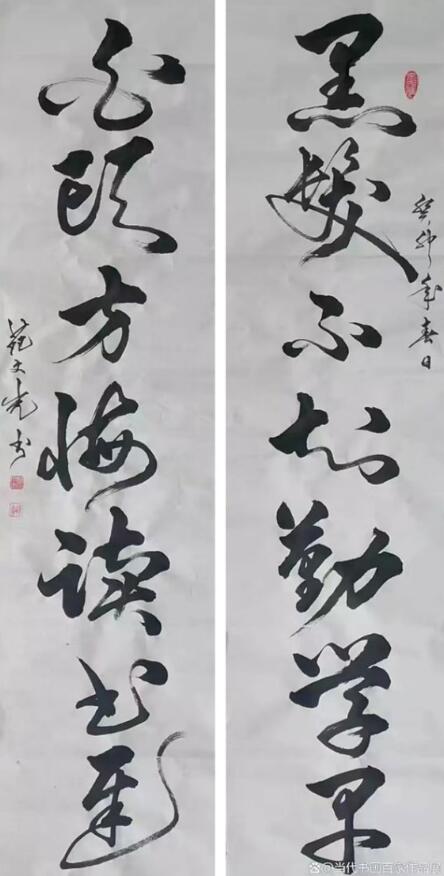 黑髮不知勤学早
癸卯年春日
白頭方悔读书遲
范文光书
@当代书画百家作品展